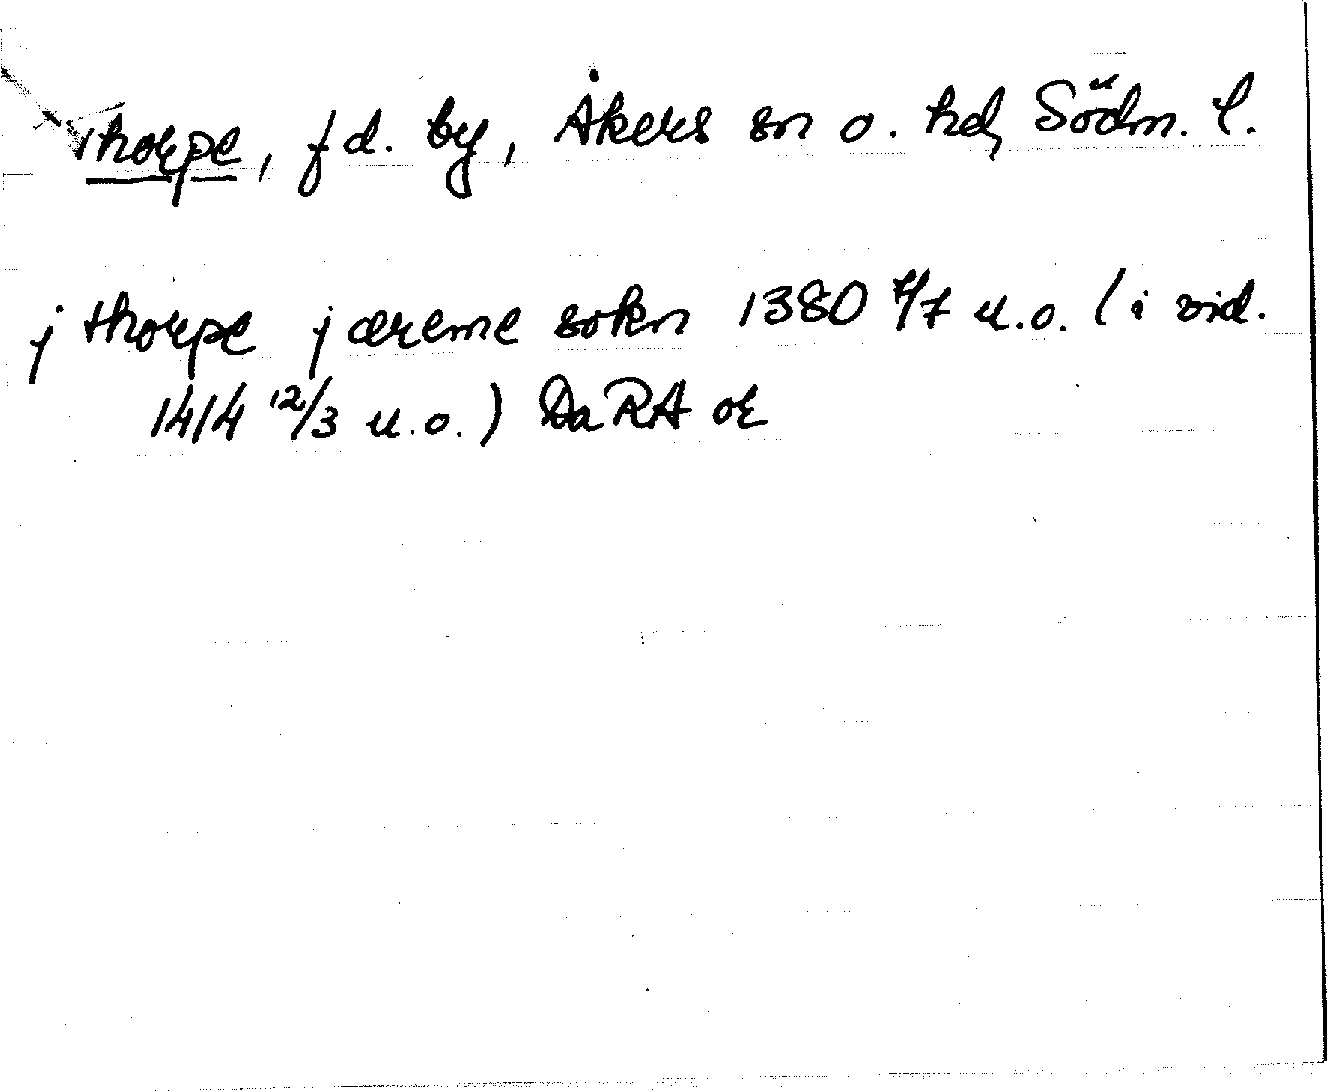 thorpe, f d. by, Åkers sn o. hd, Södm. l.
j thorpe j œreme sokn 1380 4/7 u.o. (i vid.
1414 12/3 u.o.) Da RA or